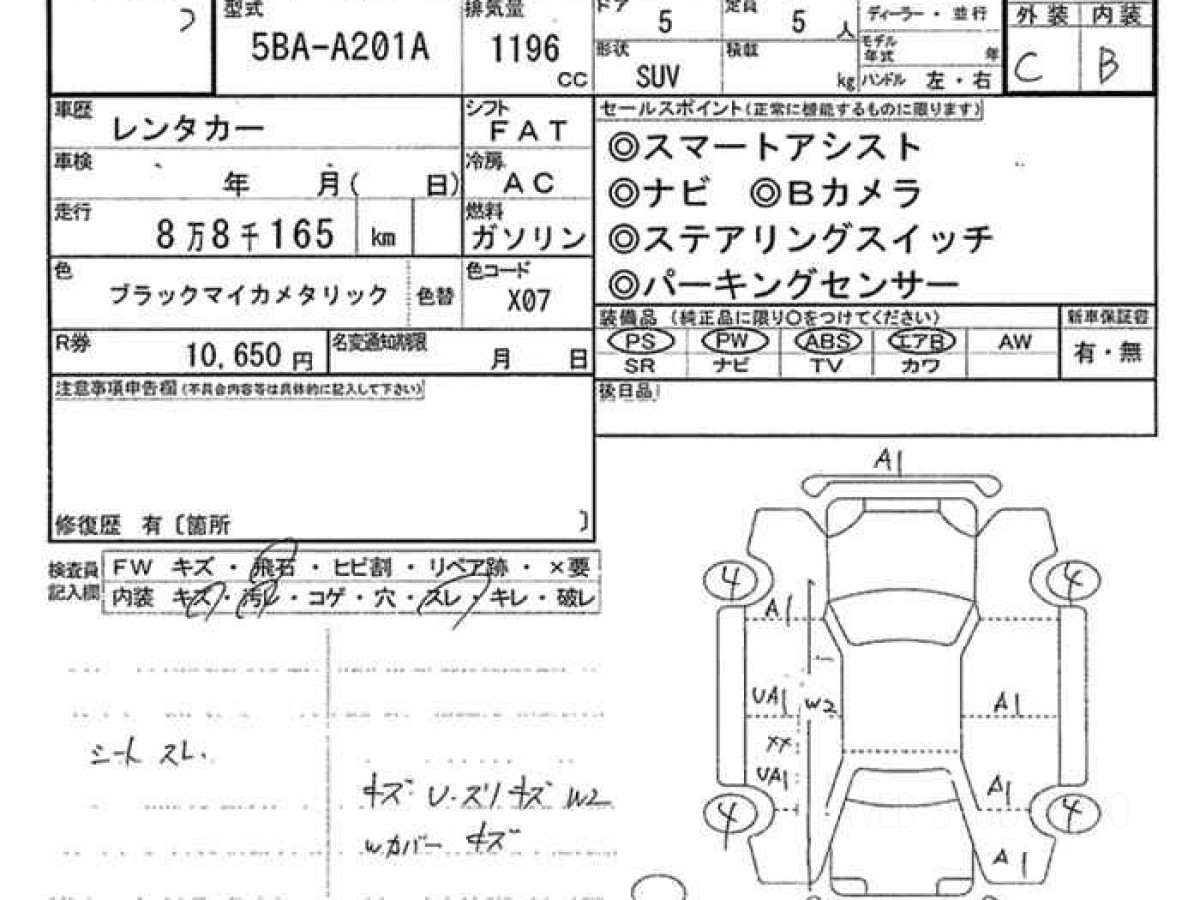 型式 5BA-A201A
排気量 1196 CC
ドア 5
定員 5 人
形状 SUV
積載 kg
ディーラー・並行
モデル年式 年
ハンドル 左・右
外装 内装
C B
車歴 レンタカー
シフト FAT
車検 年 月( 日)
冷房 AC
走行 8万8千165 km
燃料 ガソリン
色 ブラックマイカメタリック 色替
色コード X07
R券 10,650 円
名変通知期限 月 日
セールスポイント(正常に機能するものに限ります)
◎スマートアシスト
◎ナビ ◎Bカメラ
◎ステアリングスイッチ
◎パーキングセンサー
装備品 (純正品に限り○をつけてください)
新車保証書
PS PW ABS エアB AW
有・無
SR ナビ TV カワ
後日品
注意事項申告欄(不具合内容等は具体的に記入して下さい)
修復歴 有〔箇所 〕
検査員記入欄
FW キズ・飛石・ヒビ割・リペア跡・×要
内装 キズ・汚レ・コゲ・穴・スレ・キレ・破レ
シート スレ.
キズ U・スリキズ W2
Wカバー キズ
A1
4 4
A1
UA1 W2 A1
XX
UA1 A1
4 4
A1